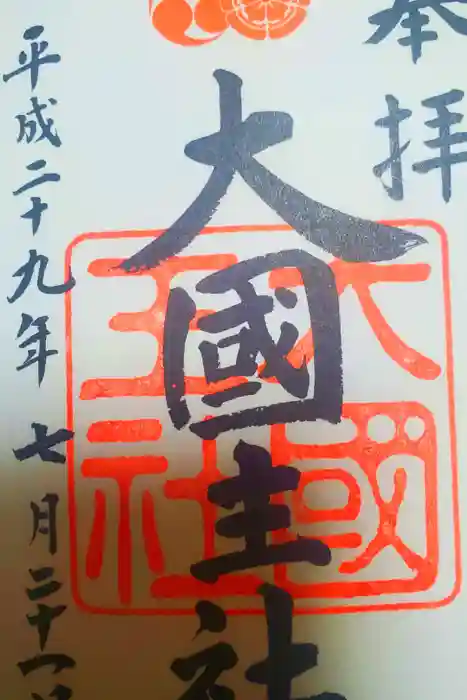 奉拝
大國主社
大國
主社
平成二十九年七月二十一日